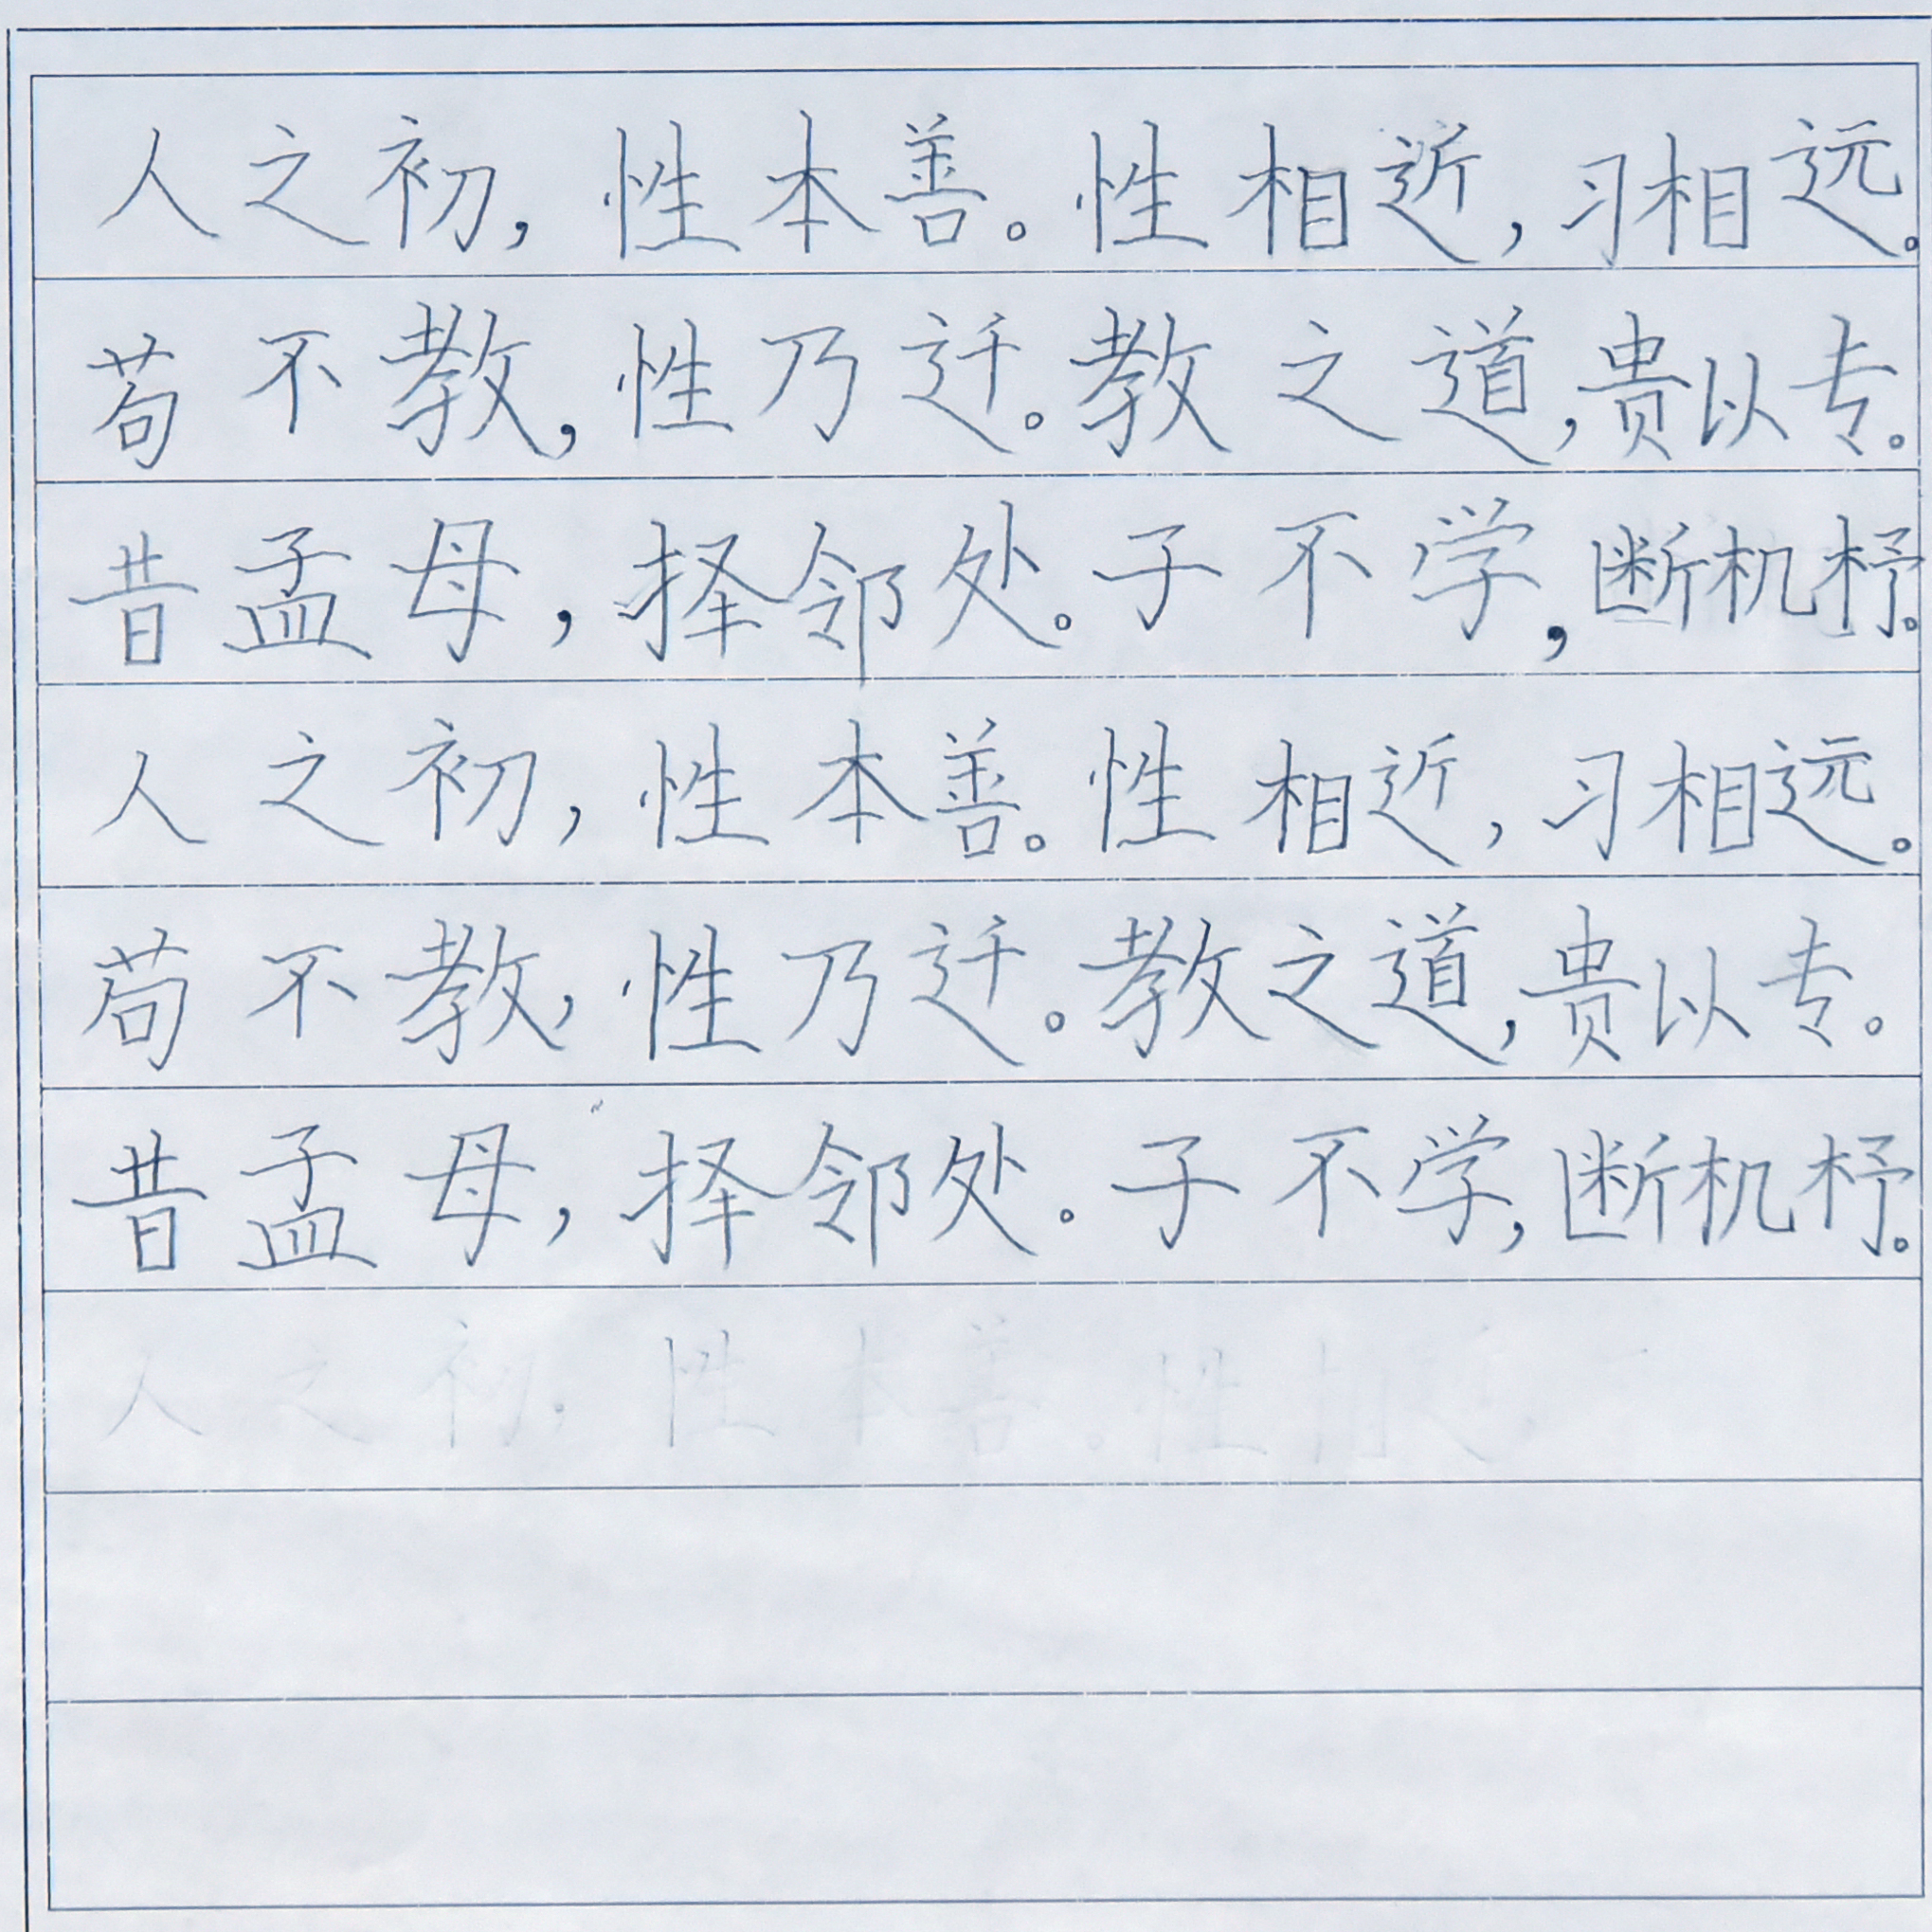 人之初，性本善。性相近，习相远。
苟不教，性乃迁。教之道，贵以专。
昔孟母，择邻处。子不学，断机杼。
人之初，性本善。性相近，习相远。
苟不教，性乃迁。教之道，贵以专。
昔孟母，择邻处。子不学，断机杼。
人之初，性本善。性相近，